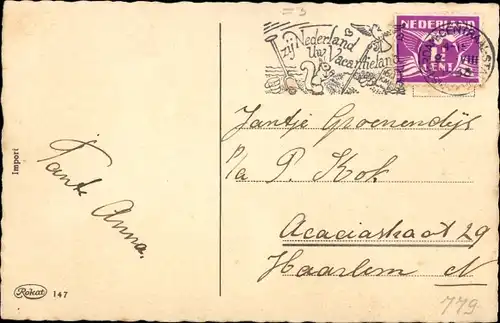 = 3
zij Nederland
Uw Vacantieland
NEDERLAND
CENT
CENTRAAL-STA
VIII
Import
Tante Anna.
Jantje Groenendijk
p/a P. Kok
Acaciastraat 29
Haarlem N
Rokat 147
779